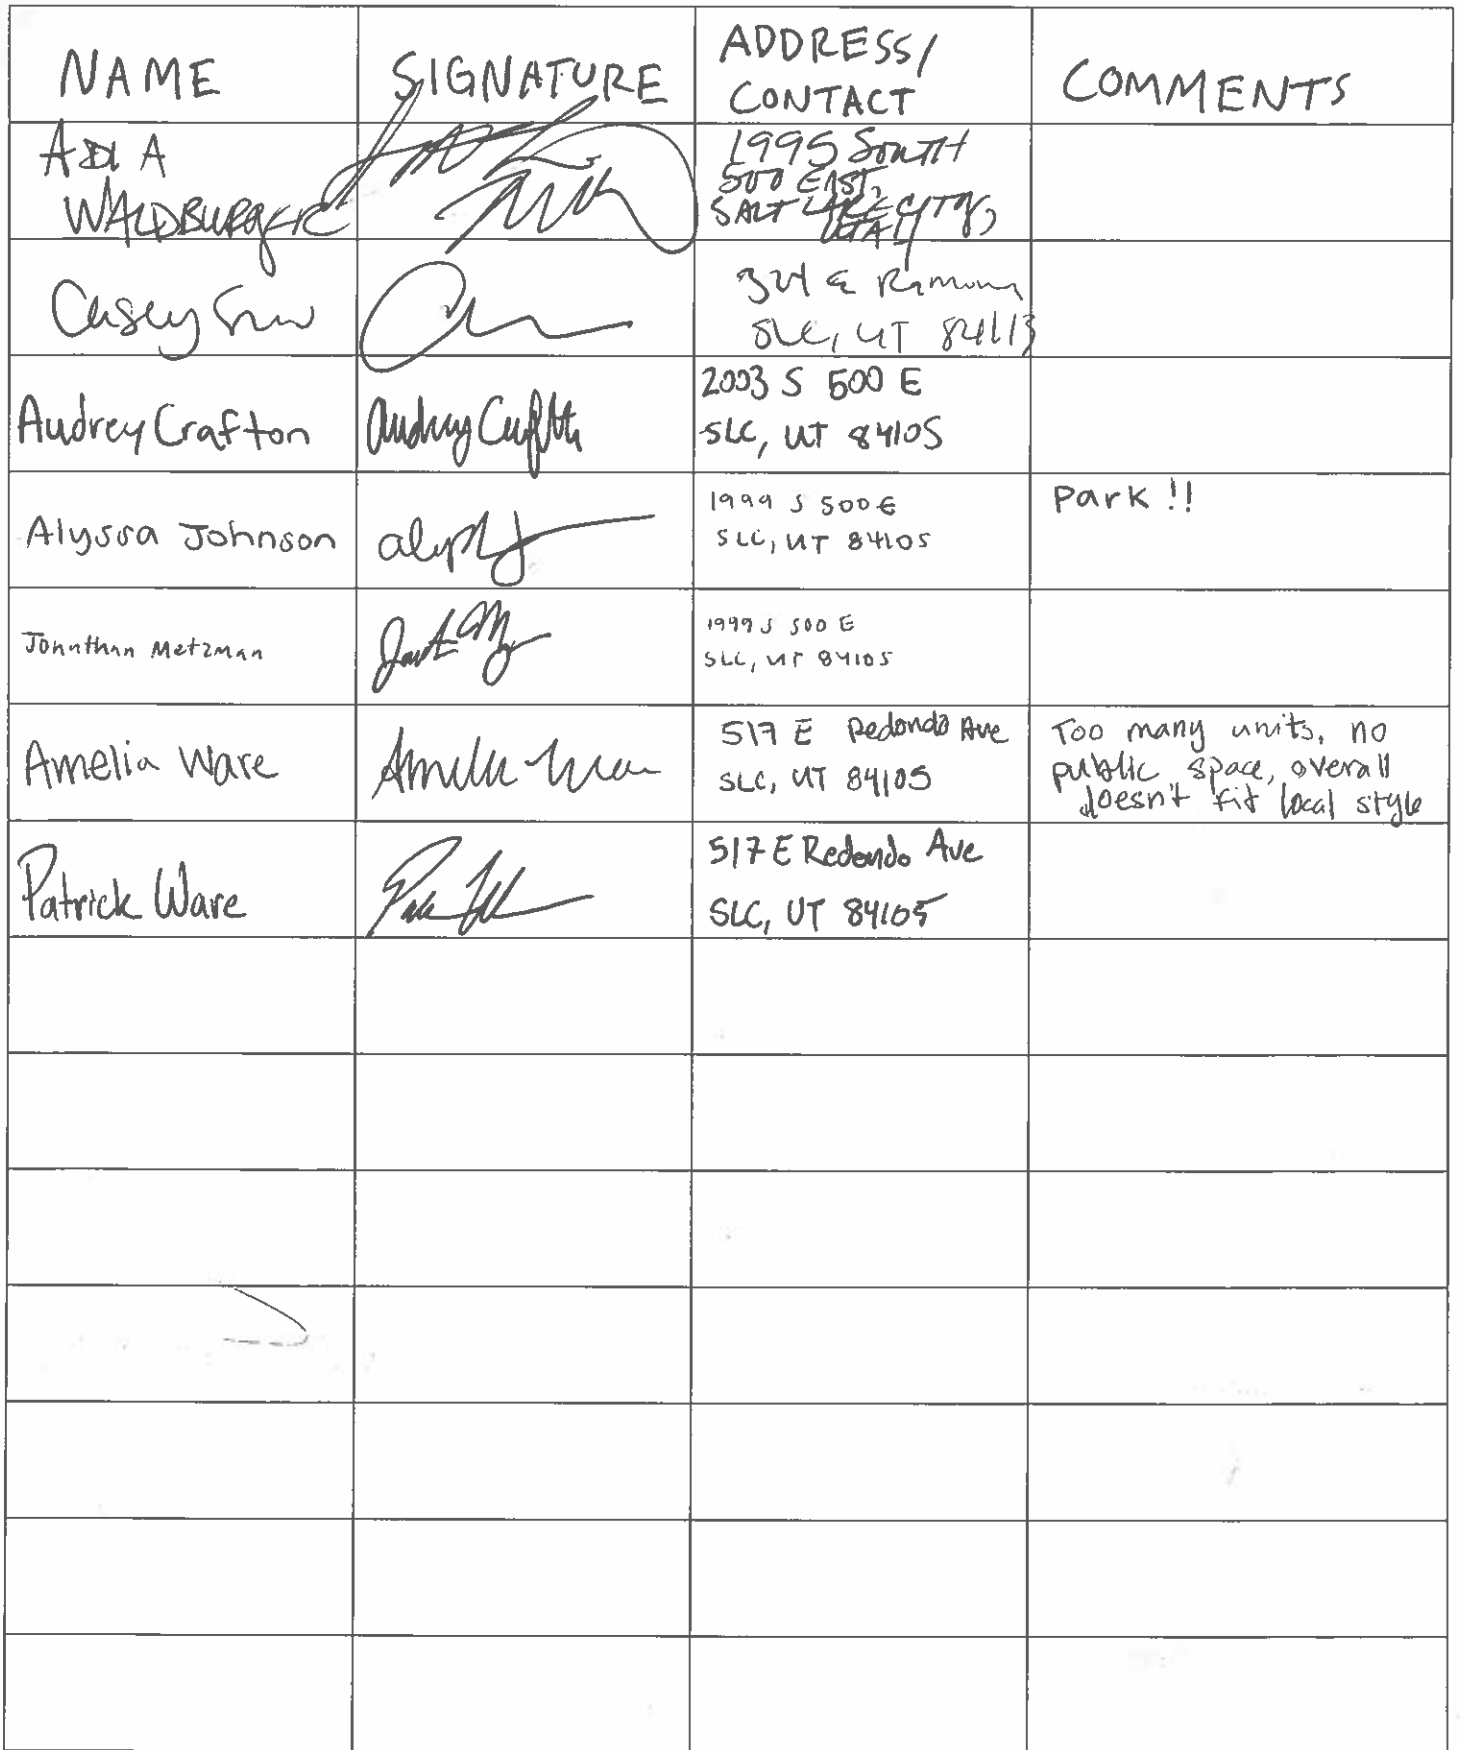 NAME
SIGNATURE
ADDRESS/
CONTACT
COMMENTS
WALDBURGER
1995 SOUTH
500 EAST,
SALT LAKE CITY,
UTAH
Casey
324 E Ramona
SLC, UT 84113
Audrey Crafton
2003 S 500 E
SLC, UT 84105
Alyssa Johnson
1999 S 500 E
SLC, UT 84105
Park!!
Johnthan Metzman
1999 S 500 E
SLC, UT 84105
Amelia Ware
517 E Redondo Ave
SLC, UT 84105
Too many units, no
public space, overall
doesn't fit local style
Patrick Ware
517 E Redondo Ave
SLC, UT 84105